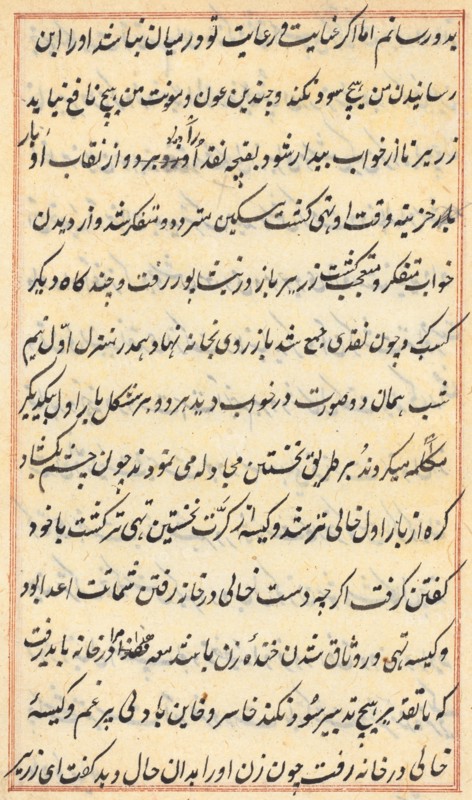 بدو رسانم اما اگر عنایت و رعایت تو درمیان نباشد او را این
رسانیدن من هیچ سود نکند و چندین عون و مونت من هیچ نافع نیاید
زریر تا از خواب بیدار شود بقیچه نقد او را برد و از نقاب او بار
خزینه وقت او تهی گشت مسکین متردد و متفکر شد و از دیدن
خواب متفکر و متعجب گشت زریر باز در نیشاپور رفت و چند گاه دیگر
کسب کرد چون نقدی جمع شد باز روی بخانه نهاد همدر منزل اول نیم
شب همان دو صورت در خواب دید هر دو بر مشکل بار اول بیکدیگر
مکالمه میکروند بر طریق نخستین مجادله می نمودند چون چشم بکشاد
گره از بار اول خالی تر شد و کیسه از کرّت نخستین تهی تر گشت با خود
گفتن گرفت اگرچه دست خالی در خانه رفتن شماتت اعدا بود
و کیسه تهی در وثاق شدن خندهٔ زن باشد معه در خانه باید رفت
که با تقدیر هیچ تدبیر سود نکند خاسر و خاین با دلی پرغم و کیسهٔ
خالی در خانه رفت چون زن او را بدان حال دید گفت ای زریر